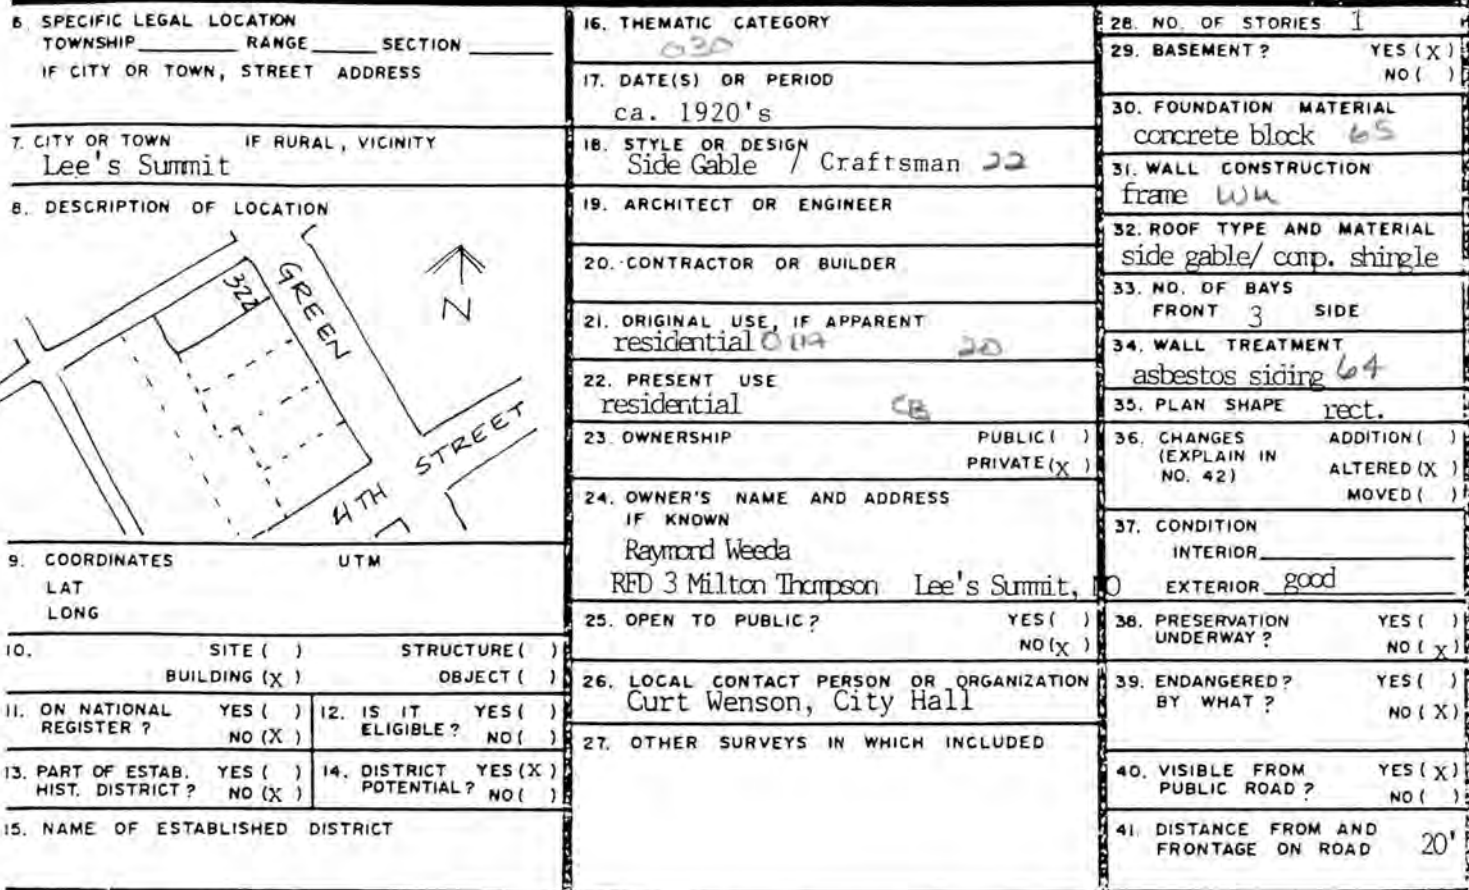 6. SPECIFIC LEGAL LOCATION
TOWNSHIP RANGE SECTION
IF CITY OR TOWN, STREET ADDRESS
7. CITY OR TOWN IF RURAL, VICINITY
Lee's Summit
8. DESCRIPTION OF LOCATION
322
GREEN
N
4TH STREET
9. COORDINATES UTM
LAT
LONG
10. SITE ( ) STRUCTURE ( )
BUILDING (X ) OBJECT ( )
11. ON NATIONAL REGISTER ? YES ( ) NO (X )
12. IS IT ELIGIBLE ? YES ( ) NO ( )
13. PART OF ESTAB. HIST. DISTRICT ? YES ( ) NO (X )
14. DISTRICT POTENTIAL ? YES (X ) NO ( )
15. NAME OF ESTABLISHED DISTRICT
16. THEMATIC CATEGORY
030
17. DATE(S) OR PERIOD
ca. 1920's
18. STYLE OR DESIGN
Side Gable / Craftsman 22
19. ARCHITECT OR ENGINEER
20. CONTRACTOR OR BUILDER
21. ORIGINAL USE, IF APPARENT
residential 01A 20
22. PRESENT USE
residential CB
23. OWNERSHIP PUBLIC ( )
PRIVATE (X )
24. OWNER'S NAME AND ADDRESS
IF KNOWN
Raymond Weeda
RFD 3 Milton Thompson Lee's Summit, MO
25. OPEN TO PUBLIC ? YES ( )
NO (X )
26. LOCAL CONTACT PERSON OR ORGANIZATION
Curt Wenson, City Hall
27. OTHER SURVEYS IN WHICH INCLUDED
28. NO. OF STORIES 1
29. BASEMENT ? YES (X )
NO ( )
30. FOUNDATION MATERIAL
concrete block 65
31. WALL CONSTRUCTION
frame
32. ROOF TYPE AND MATERIAL
side gable/ comp. shingle
33. NO. OF BAYS
FRONT 3 SIDE
34. WALL TREATMENT
asbestos siding 64
35. PLAN SHAPE rect.
36. CHANGES ADDITION ( )
(EXPLAIN IN NO. 42) ALTERED (X )
MOVED ( )
37. CONDITION
INTERIOR
EXTERIOR good
38. PRESERVATION YES ( )
UNDERWAY ? NO ( X )
39. ENDANGERED ? YES ( )
BY WHAT ? NO ( X)
40. VISIBLE FROM YES ( X)
PUBLIC ROAD ? NO ( )
41. DISTANCE FROM AND
FRONTAGE ON ROAD 20'